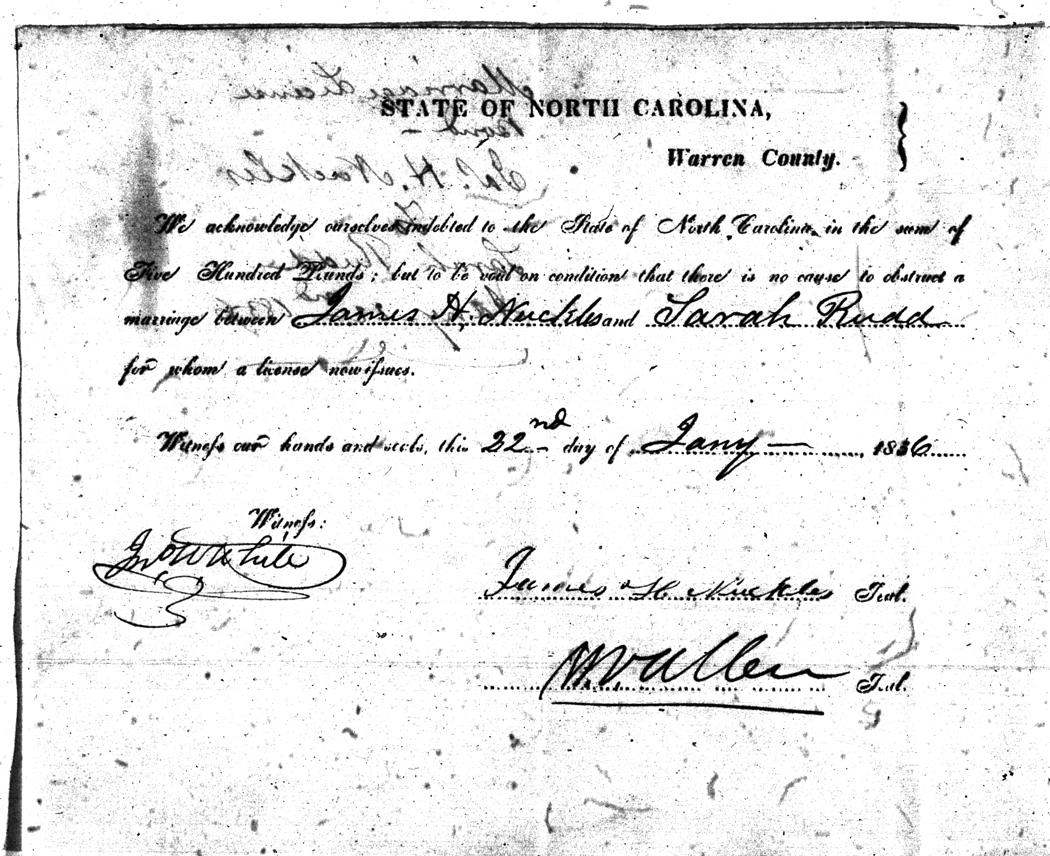 STATE OF NORTH CAROLINA,
Warren County.
We acknowledge ourselves indebted to the State of North Carolina in the sum of
Five Hundred Pounds; but to be void on condition that there is no cause to obstruct a
marriage between James H. Nuckles and Sarah Rudd
for whom a license now issues.
Witness our hands and seals, this 22nd day of Jany 1836
Witness:
Jno W White
James H Nuckles Seal.
Allen Seal.
Marriage License
Bond
Jas. H. Nuckles
To
Sarah Rudd